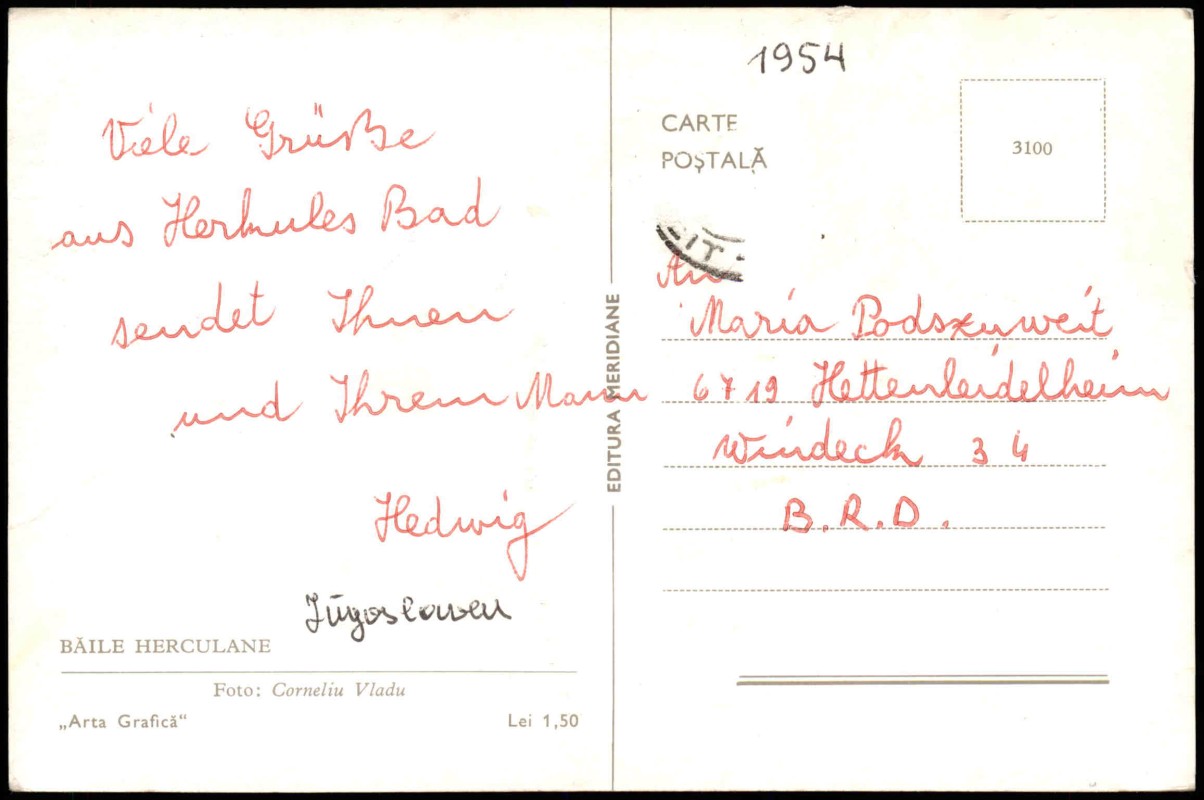 Viele Grüße
aus Herkules Bad
sendet Ihnen
und Ihrem Mann
Hedwig
Jugoslawen
BĂILE HERCULANE
Foto: Corneliu Vladu
„Arta Grafică“
Lei 1,50
EDITURA MERIDIANE
1954
CARTE
POȘTALĂ
3100
An
Maria Podszuweit
6719 Hettenleidelheim
Windeck 34
B.R.D.